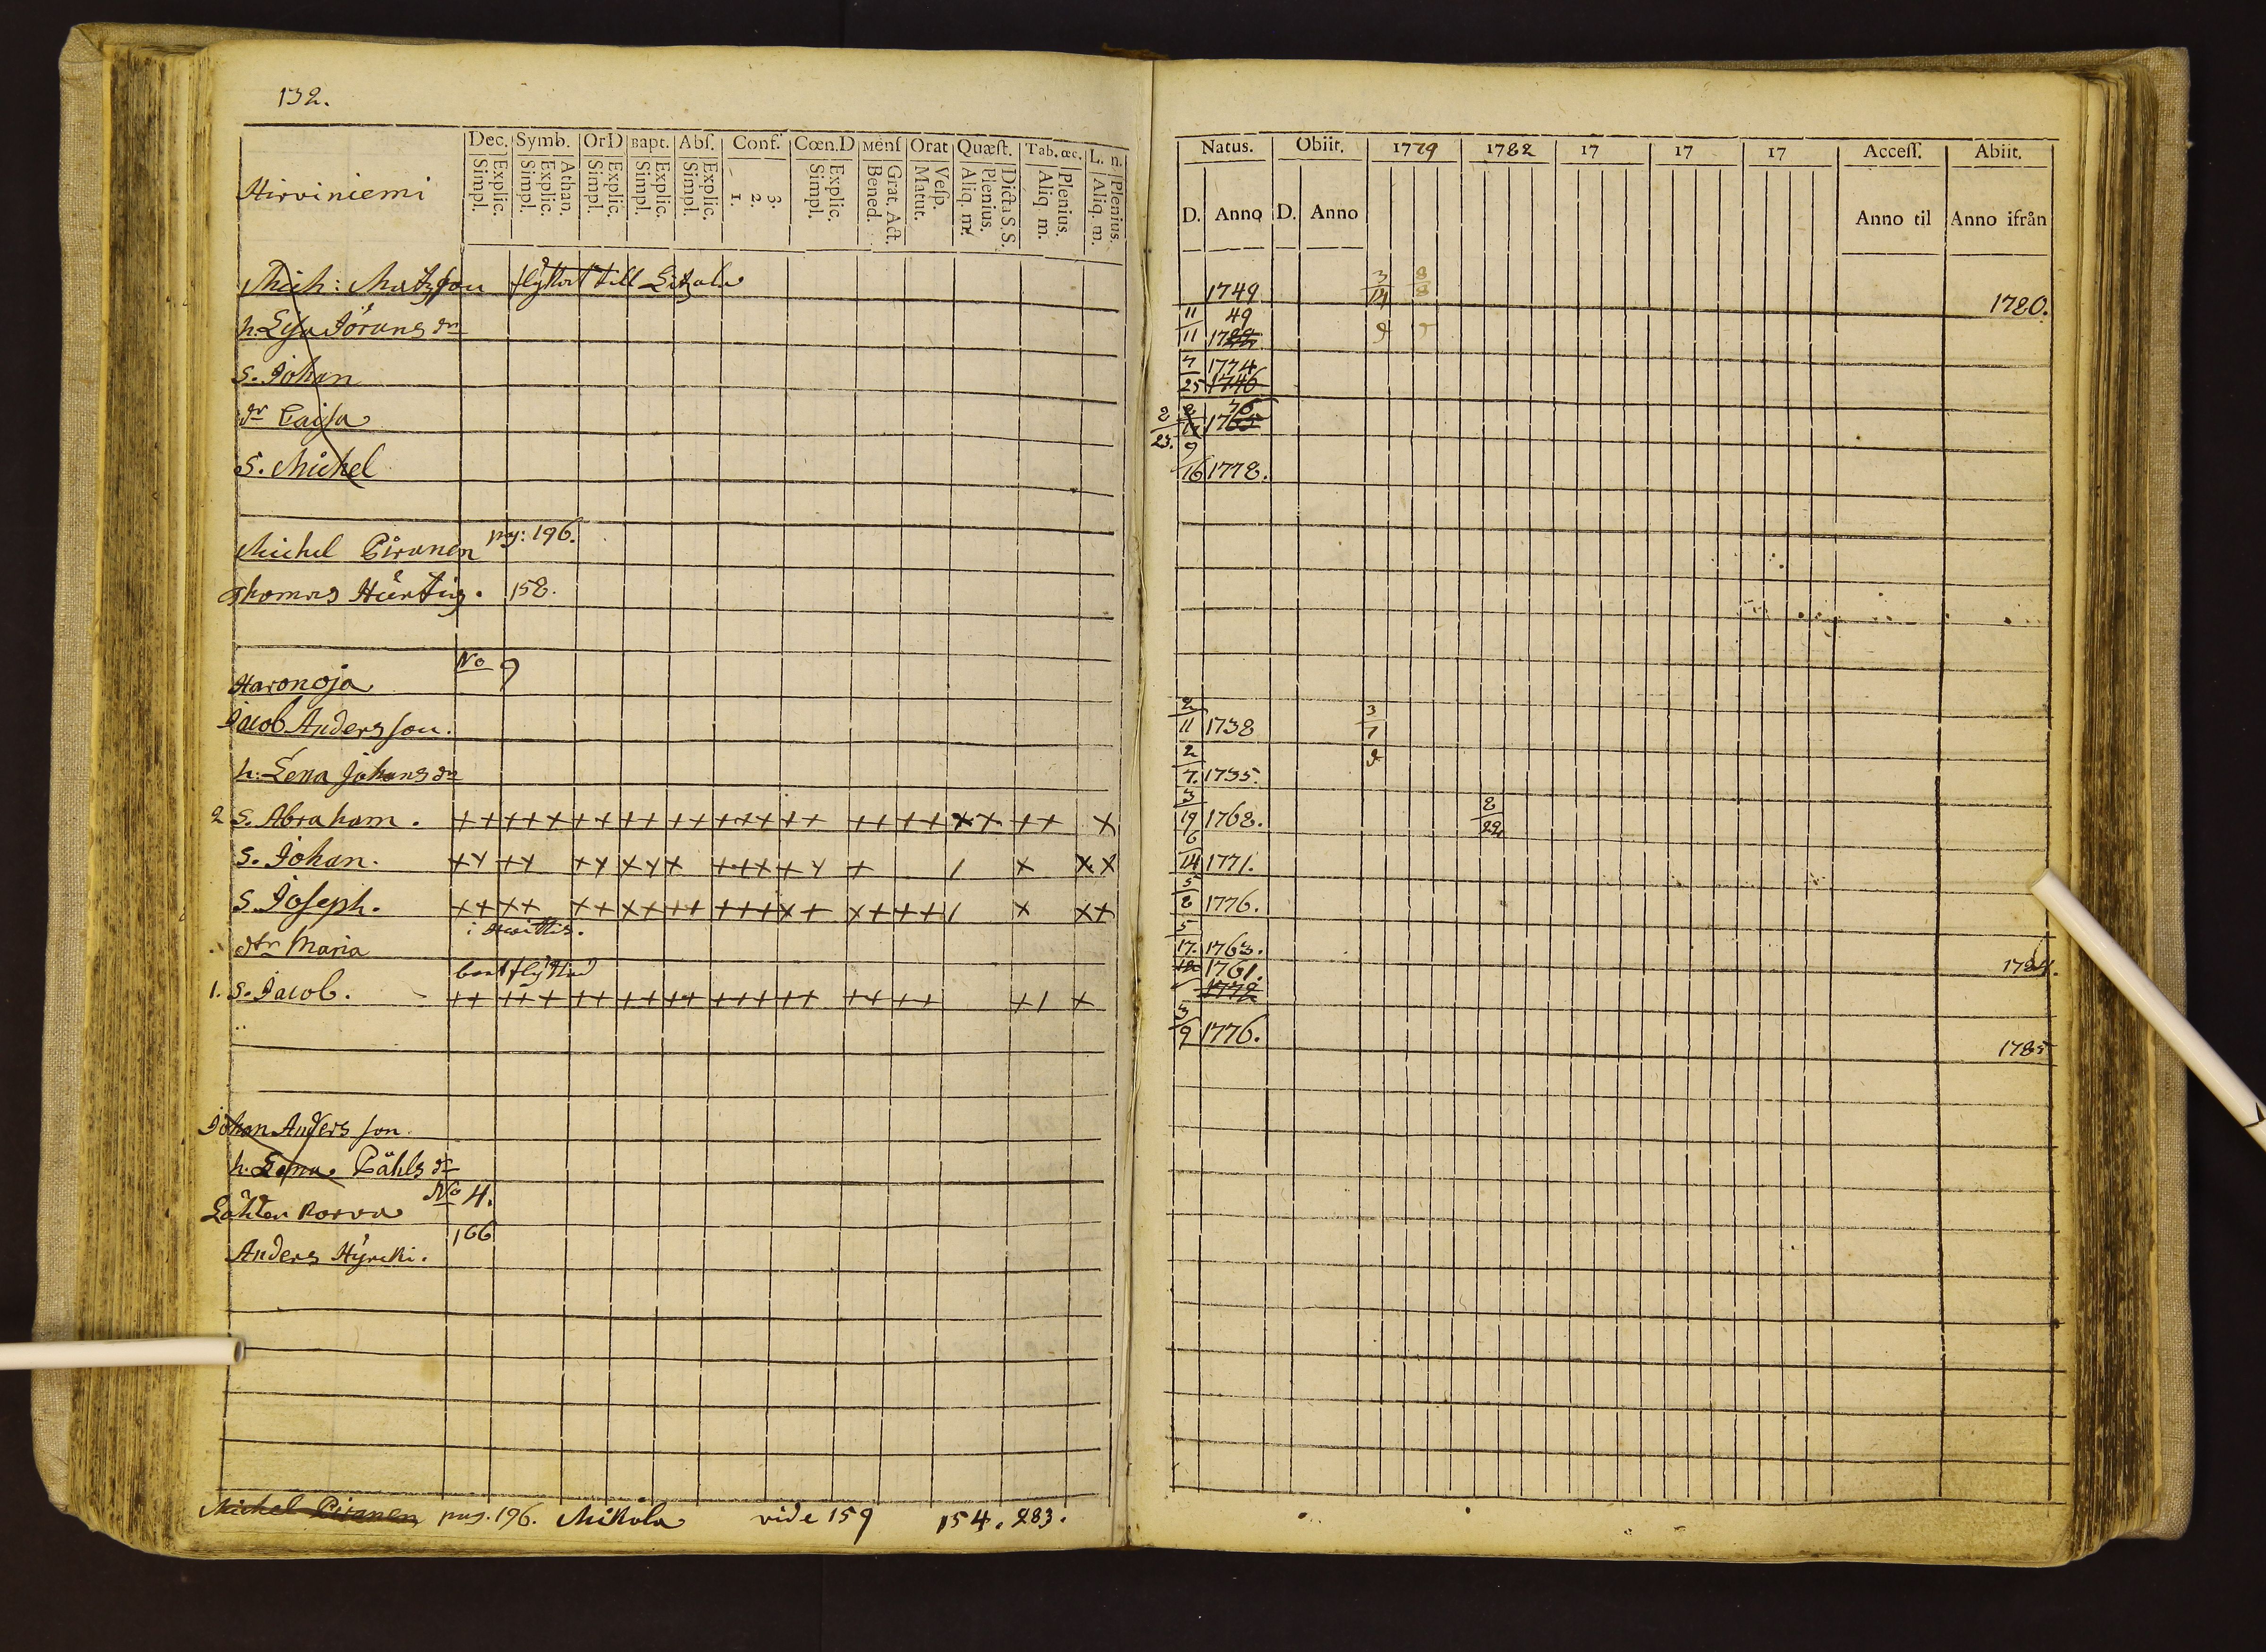 132.
Hirviniemi
Dec. Symb. OrD Bapt. Abſ. Conf. Cœn.D Menſ Orat Quæſt. Tab. œc. L. n.
Simpl. Explic. Simpl. Explic. Athan. Simpl. Explic. Simpl. Explic. Simpl. Explic. 1. 2. 3. Simpl. Explic. Bened. Grat. Act. Matut. Veſp. Aliq. m. Plenius. Dicta S.S. Aliq. m. Plenius. Aliq. m. Plenius.
Mich: Matzson flyttat till
h. Lisa Jörans dr
S. Johan
dr Caisa
S. Michel
Michel Piranen pag: 196.
Thomas Härtig. 158.
No 9
Haronoja
Jacob Andersson.
h: Lena Johans dr
2 S. Abraham. ++ +++ ++ ++ ++ +++ ++ ++ ++ ×× ++ ×
S. Johan. ++ ++ ++ +++ +++ ++ + / × ××
S. Joseph. ++ ++ ++ ++ ++ +++ ++ ++ ++ / × ×+
dtr Maria
bortflyttad
1. S. Jacob. ++ +++ ++ ++ ++ +++ ++ ++ ++ +/ +
Johan Andersson.
h. Lena Påhls dr
No 4.
Korva
166
Anders Hyrcki.
Michel Piranen pag. 196. Mikola vide 159 154. 283.
Natus. Obiit. 1779 1782 17 17 17 Acceſſ. Abiit.
D. Anno D. Anno Anno til Anno ifrån
1749 3/14 8/8 1780.
11/11 49 1722
7/25 1774 1746
2/23. 76 1765
9/16 1778.
2/11 1738 3/7
2/7. 1735.
3/19 1768. 2/22
6/14 1771.
5/8 1776.
5/17. 1763. 1784.
1761. 1772
3/9 1776. 1785